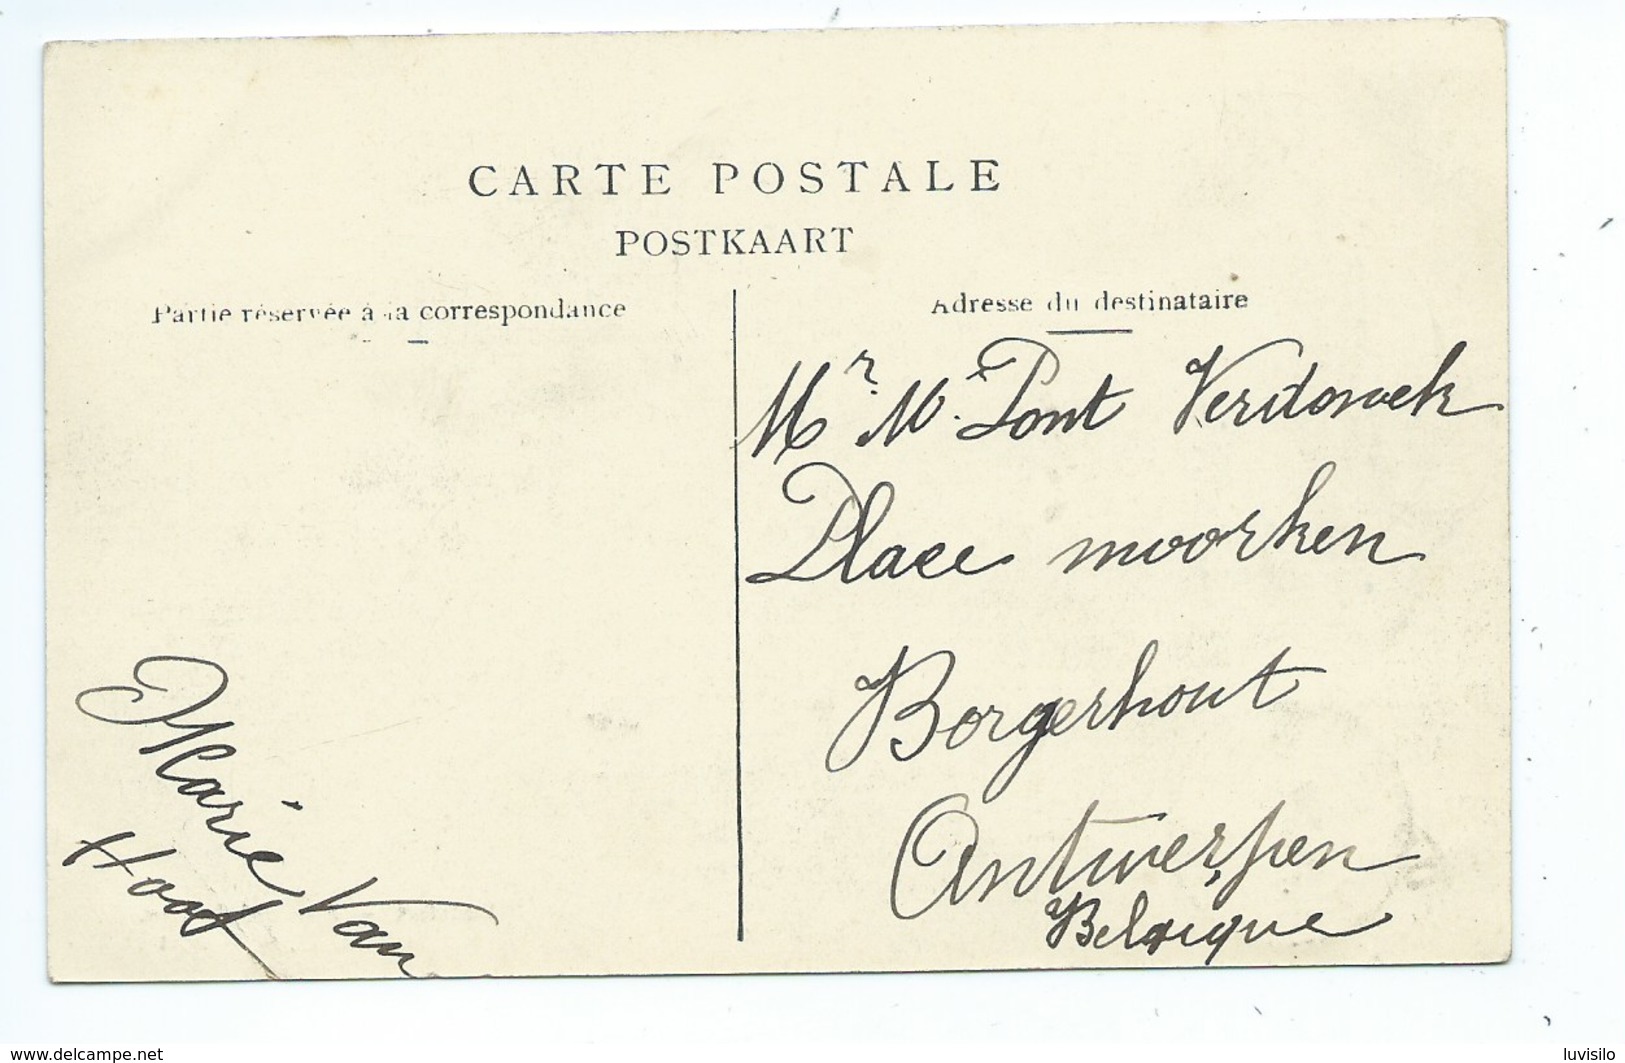 CARTE POSTALE
POSTKAART
Partie réservée à la correspondance
Adresse du destinataire
Mr. M. Pont Verdonck
Place moorken
Borgerhout
Antwerpen
Belgique
Marie Van
Hoof
www.delcampe.net
luvisilo